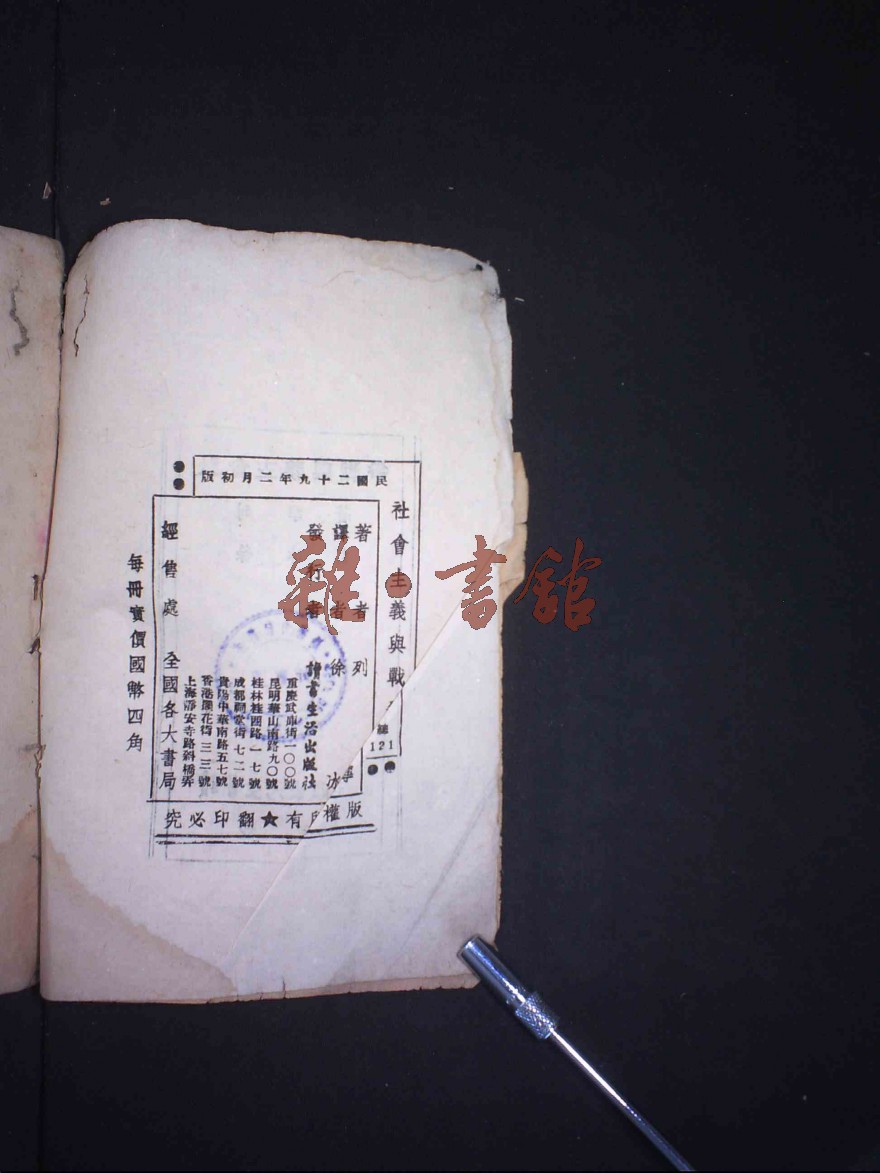 民國二十九年二月初版
社會主義與戰
總
121
著者 列
譯者 徐冰
發行者 讀書生活出版社
重慶武庫街一〇〇號
昆明華山南路九〇號
桂林桂西路一七號
成都祠堂街七二號
貴陽中華南路五七號
香港擺花街三三號
上海靜安寺路斜橋弄
經售處 全國各大書局
每冊實價國幣四角
版權 有★翻印必究
雜·書館